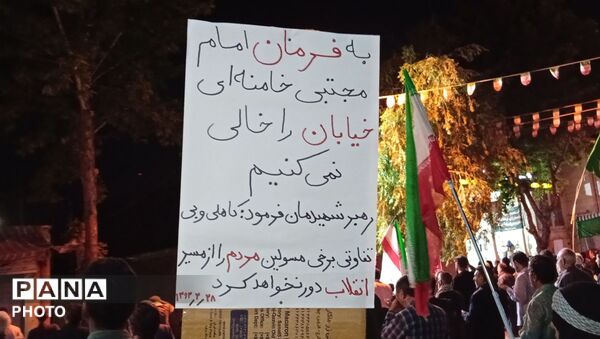 به فرمان امام
مجتبی خامنه‌ای
خیابان را خالی
نمی کنیم
رهبر شهیدمان فرمود: کاهلی و بی
تفاوتی برخی مسولین مردم را از مسیر
انقلاب دور نخواهد کرد
PANA
PHOTO